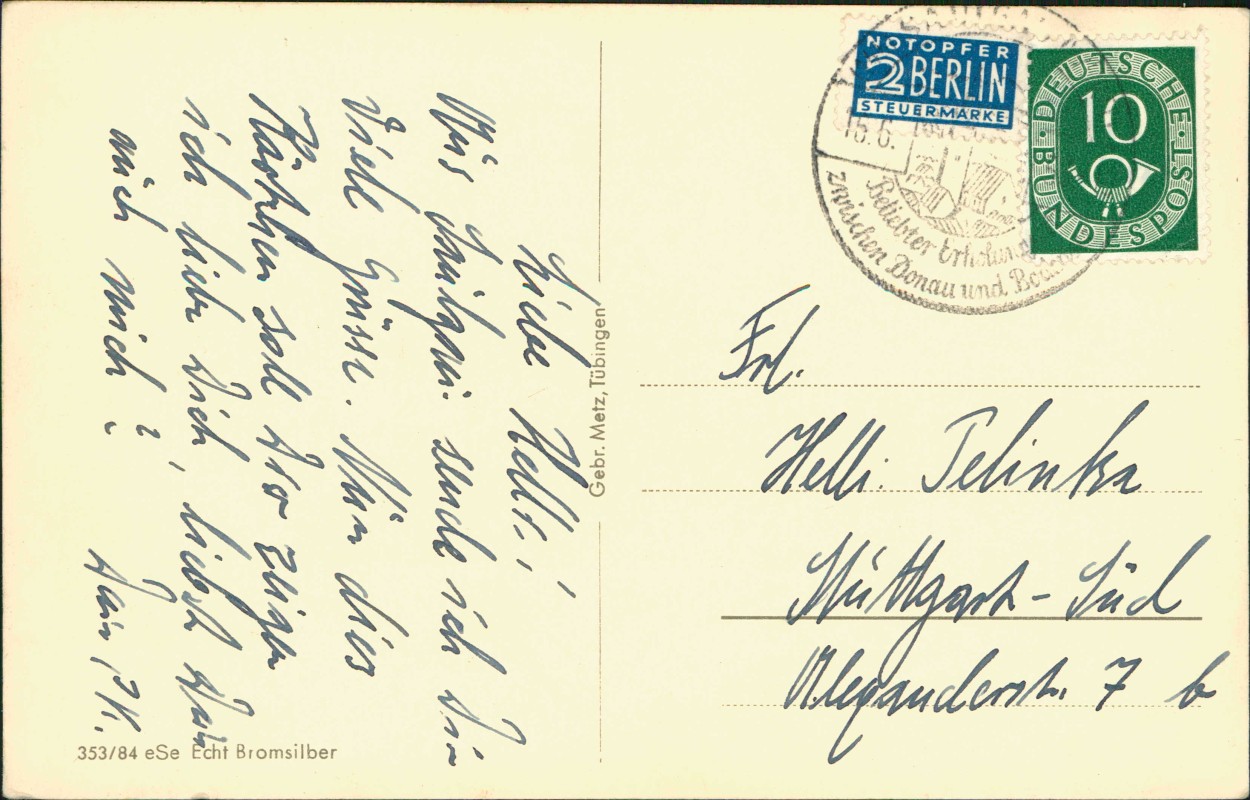 Liebe Helli,
Aus Saulgau sende ich Dir
viele Grüsse. Nur dies
Kärtchen soll Dir zeigen
ich liebe Dich, liebst Du
auch mich?
Gebr. Metz, Tübingen
353/84 eSe Echt Bromsilber
NOTOPFER
2 BERLIN
STEUERMARKE
DEUTSCHE BUNDESPOST
10
15.6.
Beliebter
Zwischen Donau und
Frl.
Helli Jelinka
Stuttgart-Süd
Alexanderstr. 7 b